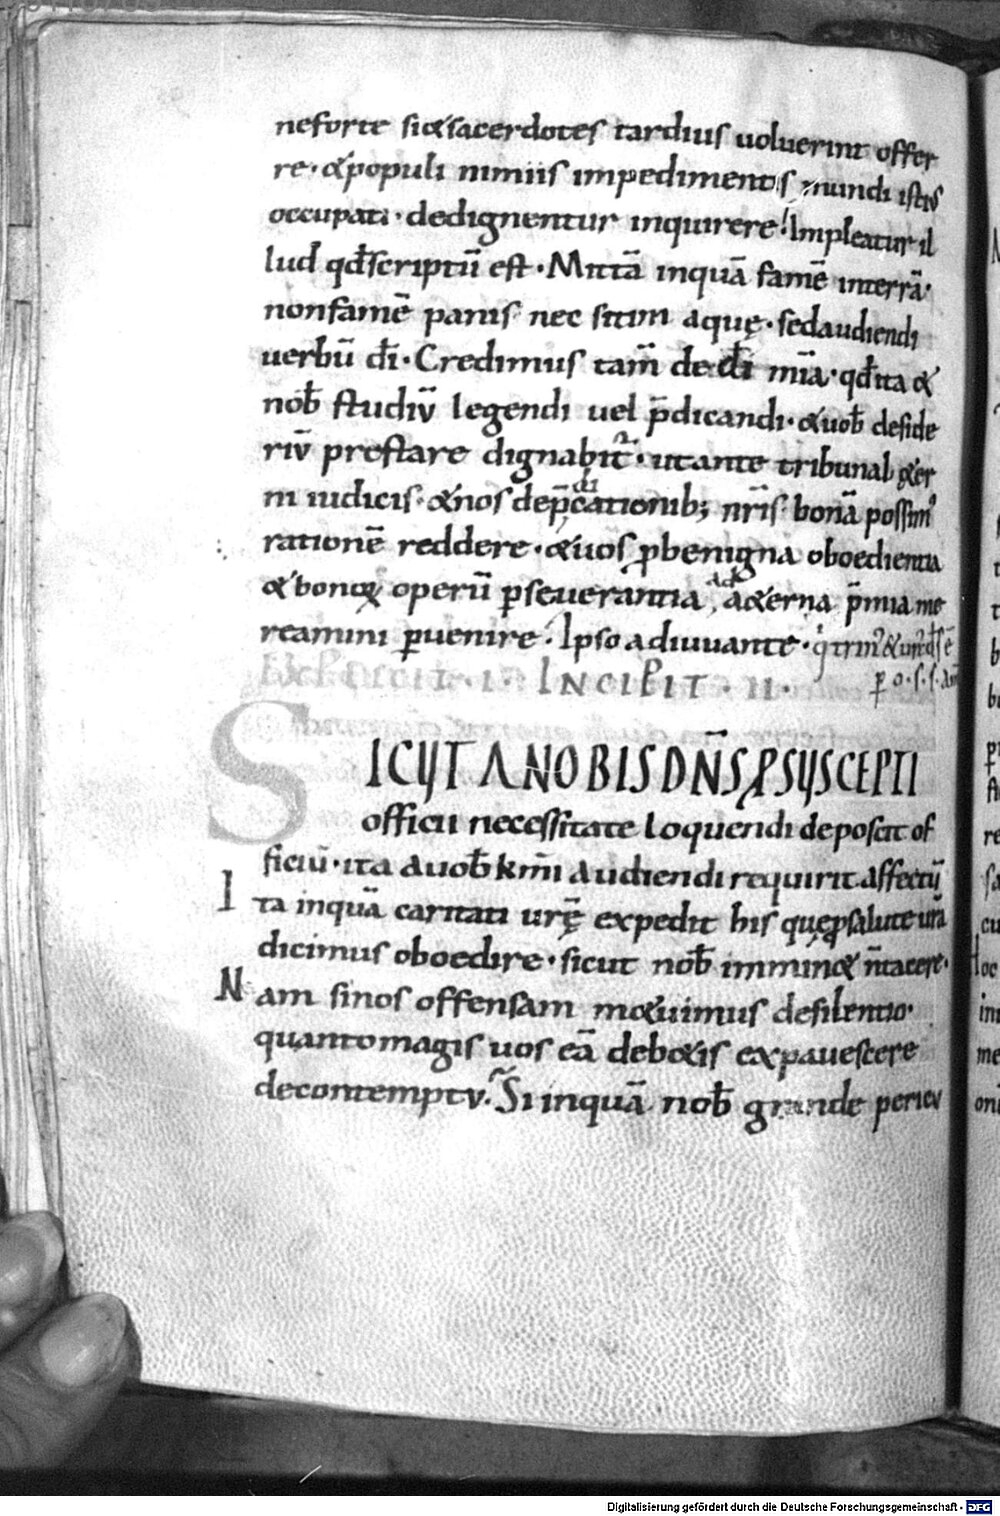 neforte si&sacerdotes tardius uoluerint offer
re· &populi nimiis impedimentis mundi istius
occupati· dedignentur inquirere! Impleatur il
lud qđscriptū est· Mittā inquā famē interrā·
nonfamē panis nec sitim aquę· sedaudiendi
uerbū dī· Credimus tam̄ de dī mīa· qđita &
nob̄ studiū legendi uel p̄dicandi· &uob̄ deside
riū prestare dignabit᷑· utante tribunal &er
ni iudicis· &nos dep̄cationib; nr̄is bonā possim᾿
rationē reddere· &uos ꝑbenigna oboedientia
&bonoꝝ operū ꝑseuerantia, ad a&erna p̄mia me
reamini ꝑuenire· Ipso adiuuante·
INCIPIT· II·
SICUT A NOBIS DN̄S ꝐSUSCEPTI
officii necessitate loquendi deposcit of
ficiū· ita auob̄ km̄i audiendi requirit affectū
Ita inquā caritati urę̄ expedit his quęꝓsalute urā
dicimus oboedire· sicut nob̄ immin& n̄tacere·
Nam sinos offensam m&uimus desilentio·
quantomagis uos eā deb&is expauescere
decontemptu· Si inquā nob̄ grande pericu
Digitalisierung gefördert durch die Deutsche Forschungsgemeinschaft - DFG